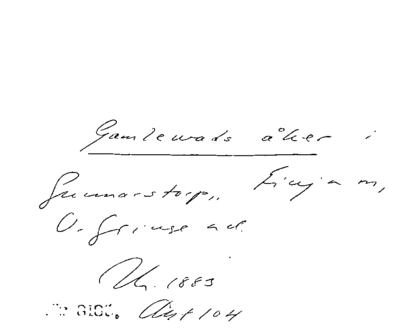 Gamlewads åker i
Gunnarstorp, Finja m,
V. Göinge hd.
Th. 1883
Nr 8180. Aut 104